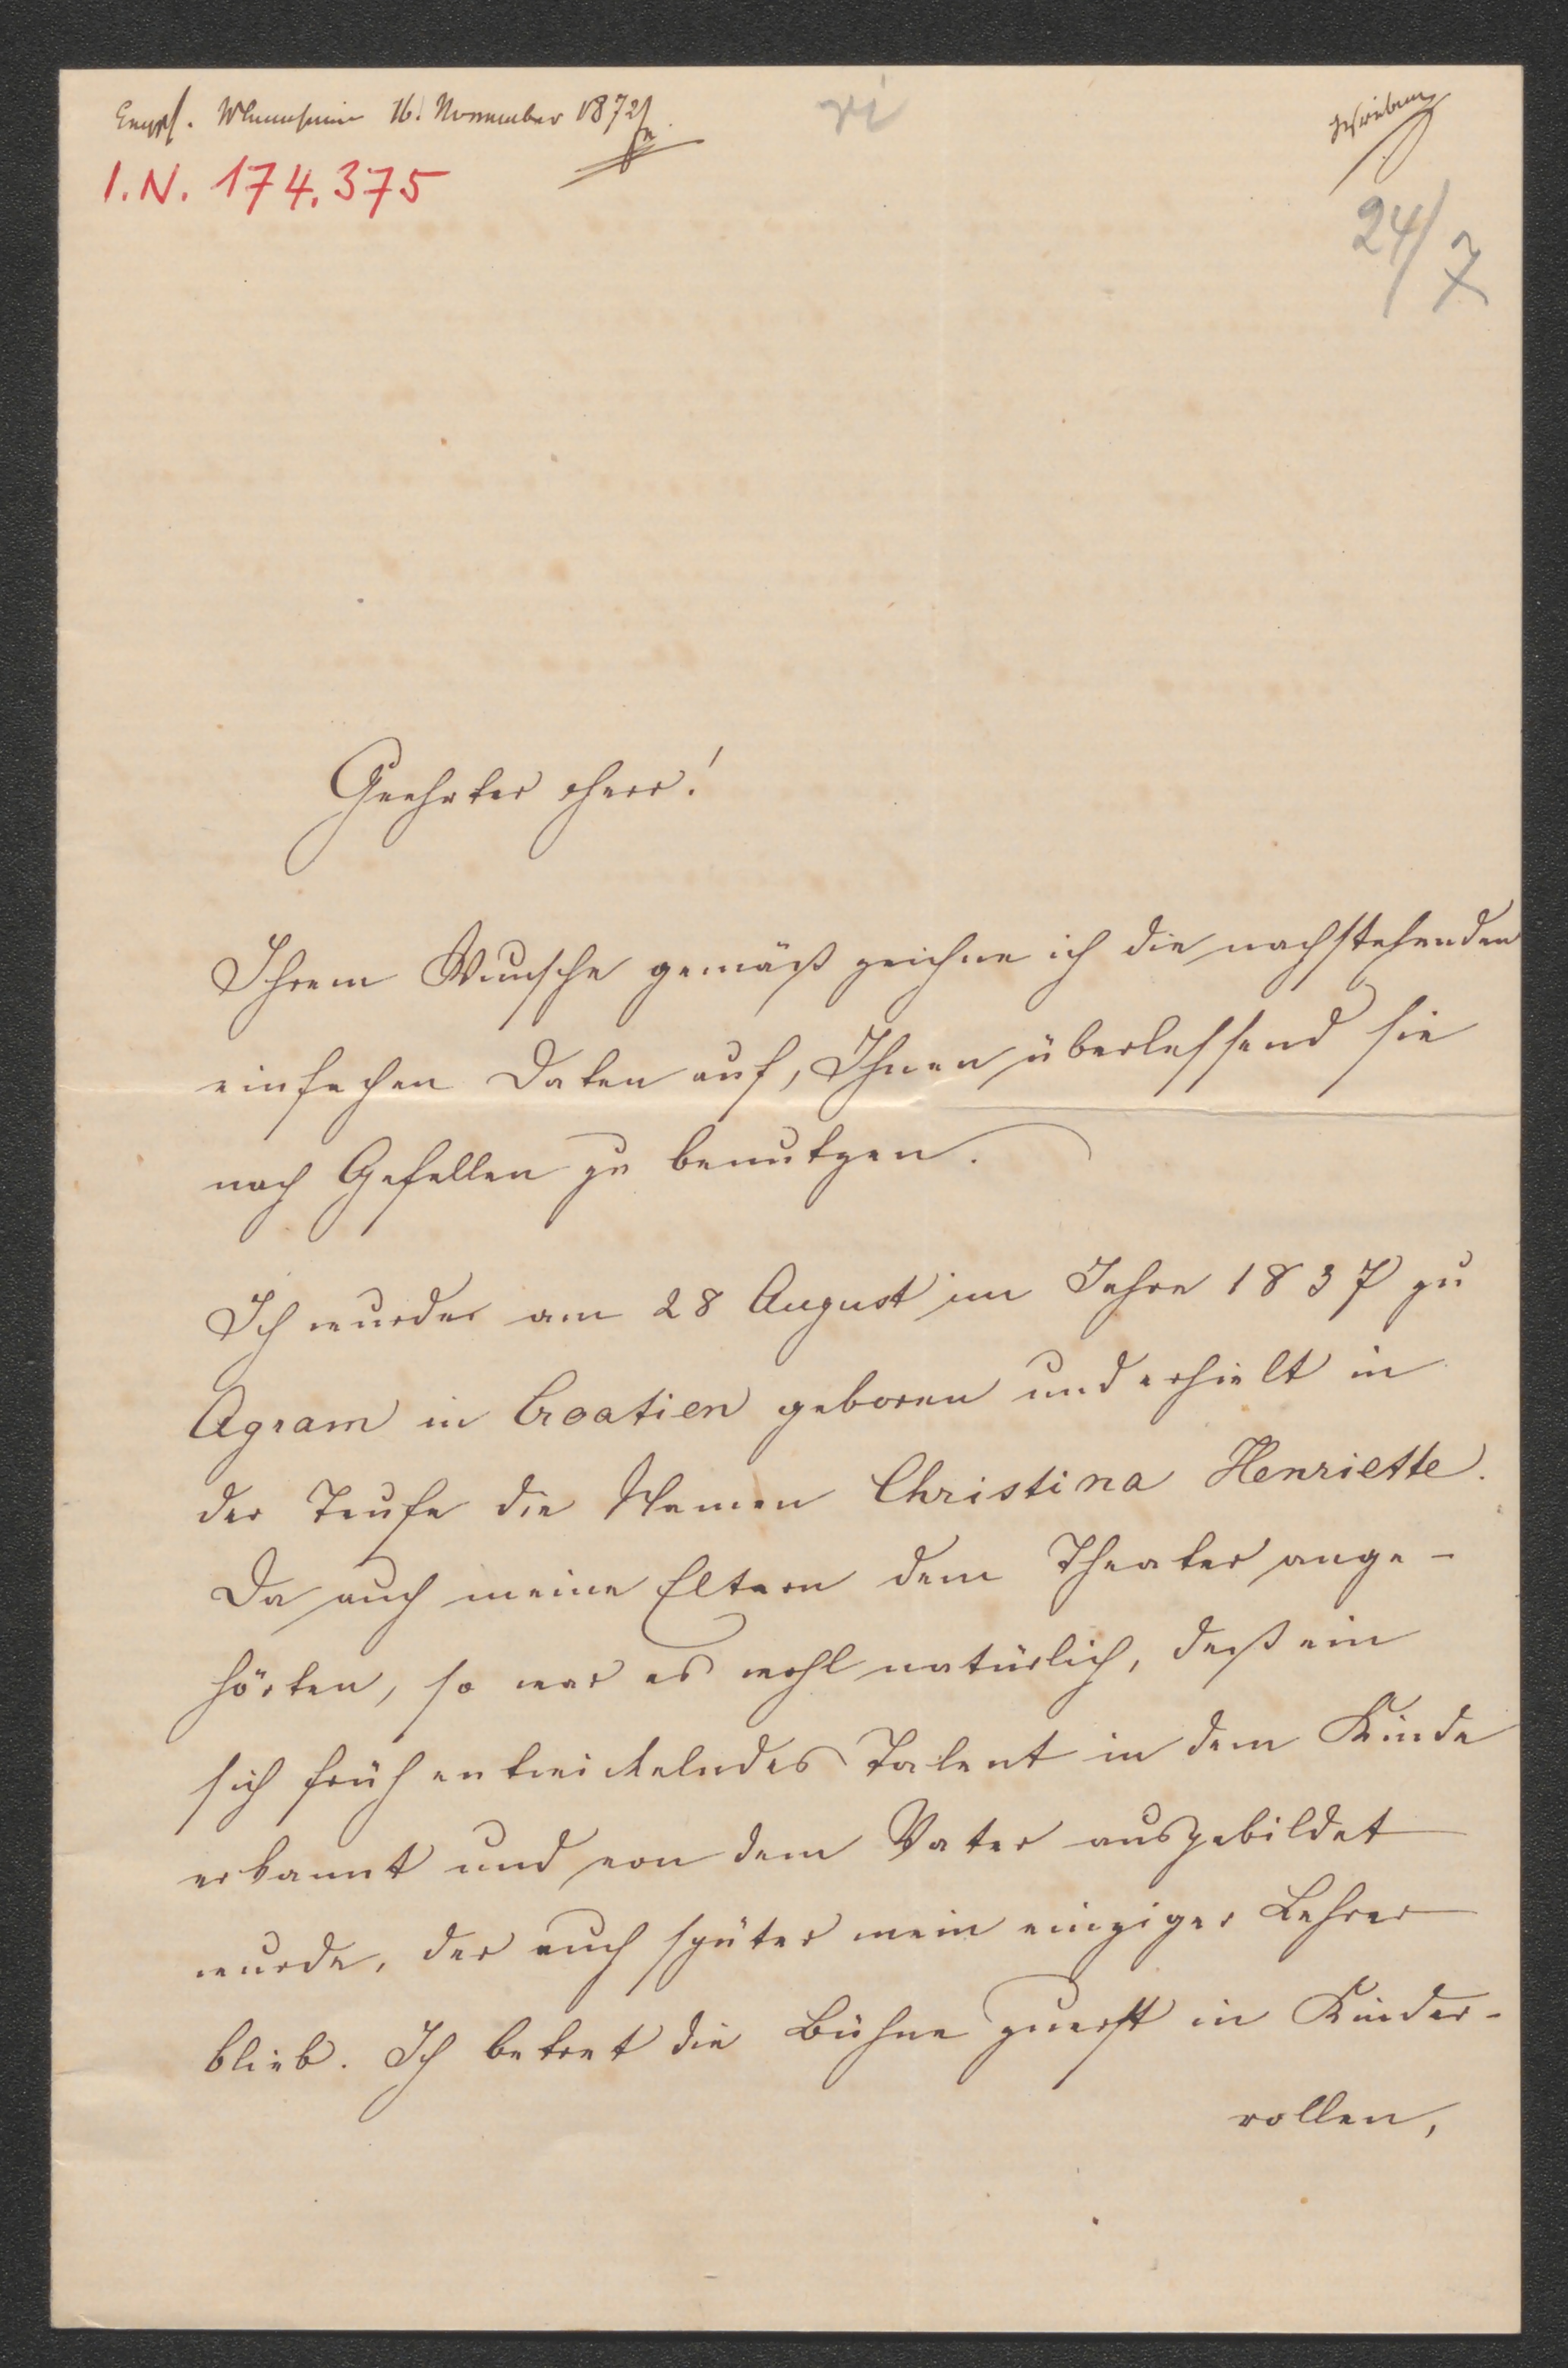 Empf. Mannheim 16. November 1872
I.N. 174.375
24/7
Geehrter Herr!
Ihrem Wunsche gemäß zeichne ich die nachstehenden
einfachen Daten auf, Ihnen überlassend sie
nach Gefallen zu benutzen.
Ich wurde am 28 August im Jahre 1837 zu
Agram in Croatien geboren und erhielt in
der Taufe die Namen Christina Henriette.
Da auch meine Eltern dem Theater ange-
hörten, so war es wohl natürlich, daß ein
sich früh entwickelndes Talent in dem Kinde
erkannt und von dem Vater ausgebildet
wurde, der auch später mein einziger Lehrer
blieb. Ich betrat die Bühne zuerst in Kinder-
rollen,